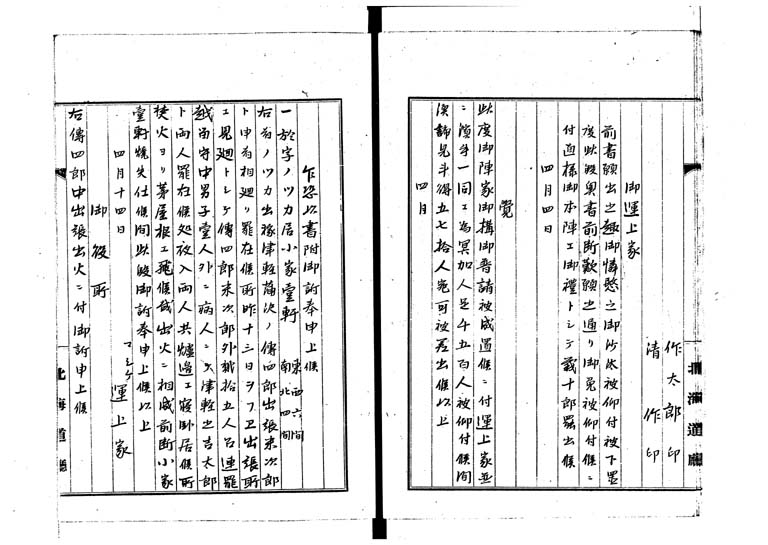 作太郎印
清作印
御運上家
前書願出之趣御憐愍之御沙汰被仰付被下置
度此段奥書前断歎願之通り御免被仰付候ニ
付直様御本陣工御禮トシテ罷出候
四月四日
覚
此度御陣家御構御普請被成置候ニ付運上家並
ニ濱手一同工為冥加人足千五百人被仰付候間
五七拾人宛可被差出候以上
四月
乍恐以書附御訴奉申上候
一於字ノツカ居小家壹軒 東西六間 南北四間
右為ノツカ出稼津軽蒲次ノ傳四郎出張来次郎
ト申為相廻り罷在候所昨十三日ヲフ卫出張所
工見廻トシテ傳四郎来次郎外拾五人召連罷
越留守中男子壹人外ニ病人ニ津軽之吉太郎
ト両人罷在候処夜入両人共爐邊工寝卧居候所
焚火ヨリ茅屋根工飛候哉出火ニ相成前断小家
壹軒焼失仕候間此段御訴奉申上候以上
マシケ 運上家
四月十四日
御役所
右傳四郎中出張出火ニ付御訴申上候
北海道廳
北海道廳